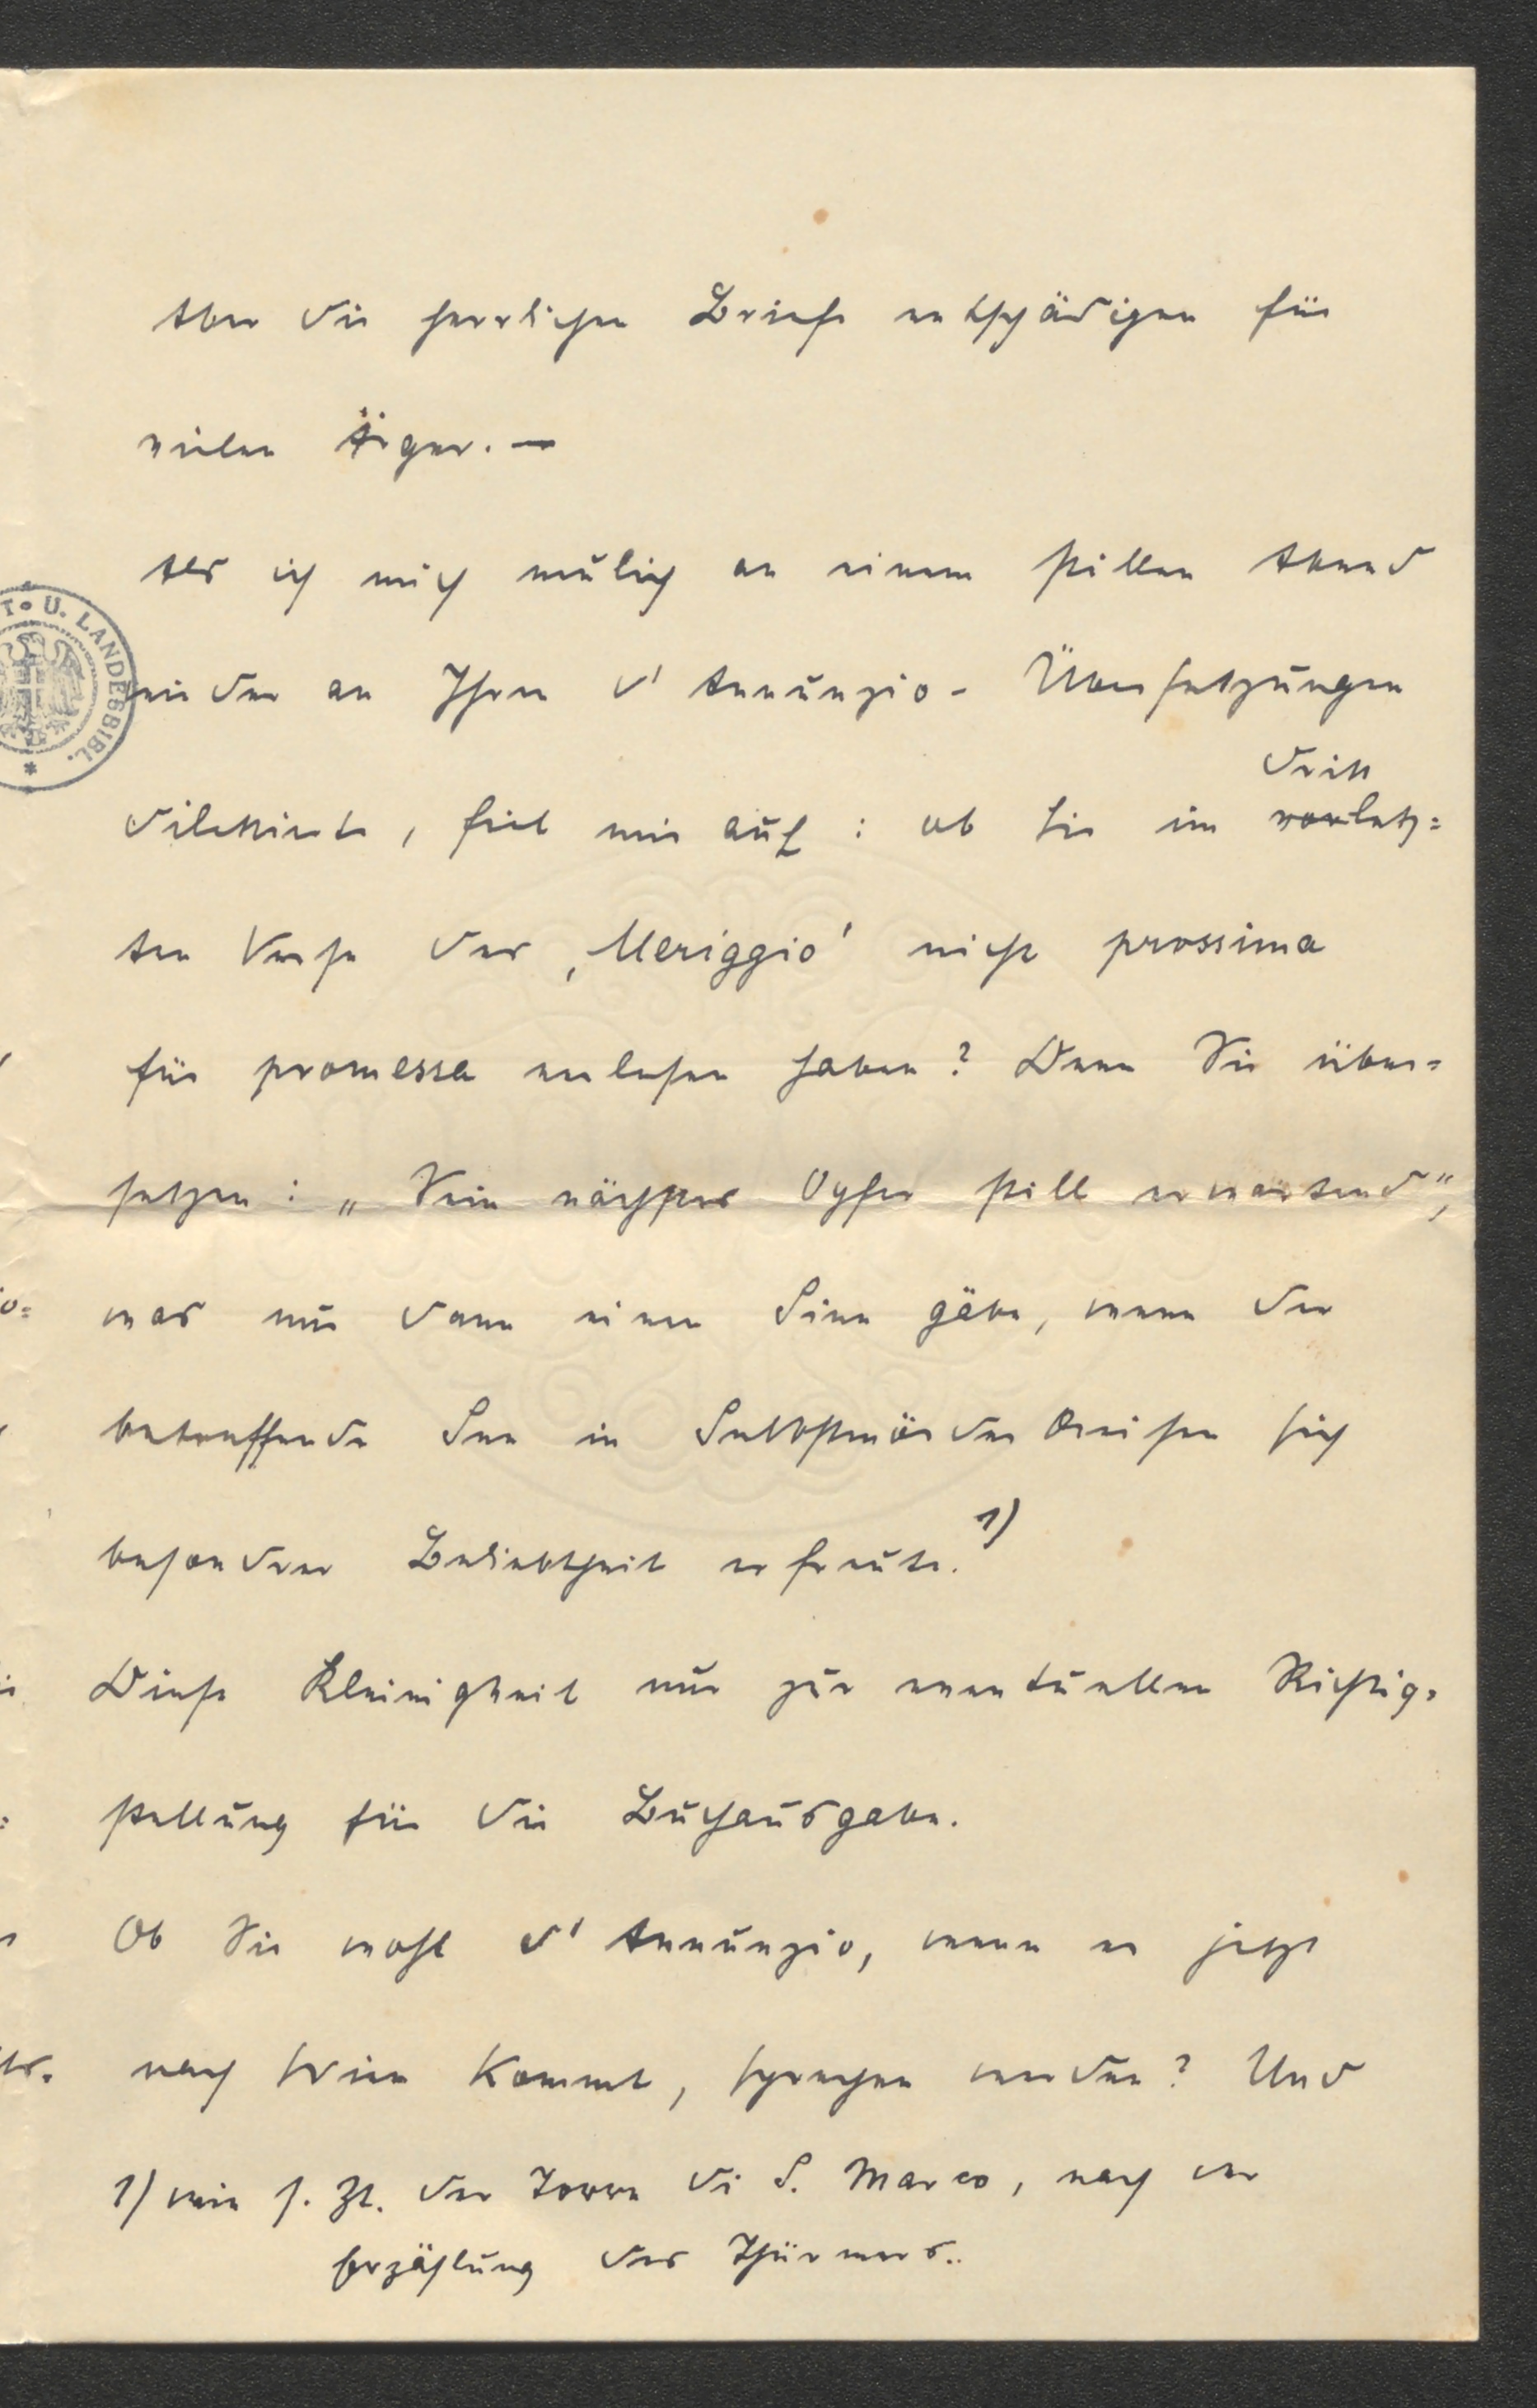 Aber die herrlichen Briefe entschädigen für
vielen Ärger. —
Als ich mich neulich an einem stillen Abend
wieder an Ihren d'Annunzio-Übersetzungen
dritt
delektierte, fiel mir auf: ob Sie im vorletz=
ten Verse des ‚Meriggio' nicht prossima
für promessa verlesen haben? Denn Sie über=
setzen: „Sein nächstes Opfer still erwartend",
was nur dann einen Sinn gäbe, wenn der
betreffende See in Selbstmörderkreisen sich
besonderer Beliebtheit erfreute. 1)
Diese Kleinigkeit nur zur eventuellen Richtig=
stellung für die Buchausgabe.
Ob Sie wohl d'Annunzio, wenn er jetzt
nach Wien kommt, sprechen werden? Und
1) wie s. Zt. der Torre di S. Marco, nach der
Erzählung des Thürmers..
T. U. LANDESBIBL.